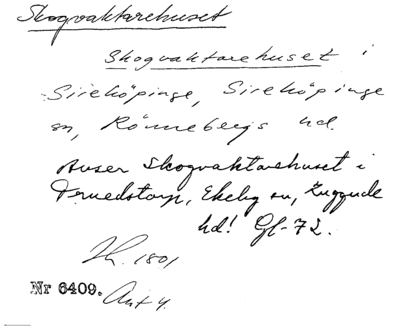 Skogvaktarehuset
Skogvaktarehuset i
Sireköpinge, Sireköpinge
sn, Rönnebergs hd.
Avser Skogvaktarehuset i
Truedstorp, Ekeby sn, Luggude
hd! Gf-72.
1801
Nr 6409.
Ant 4.